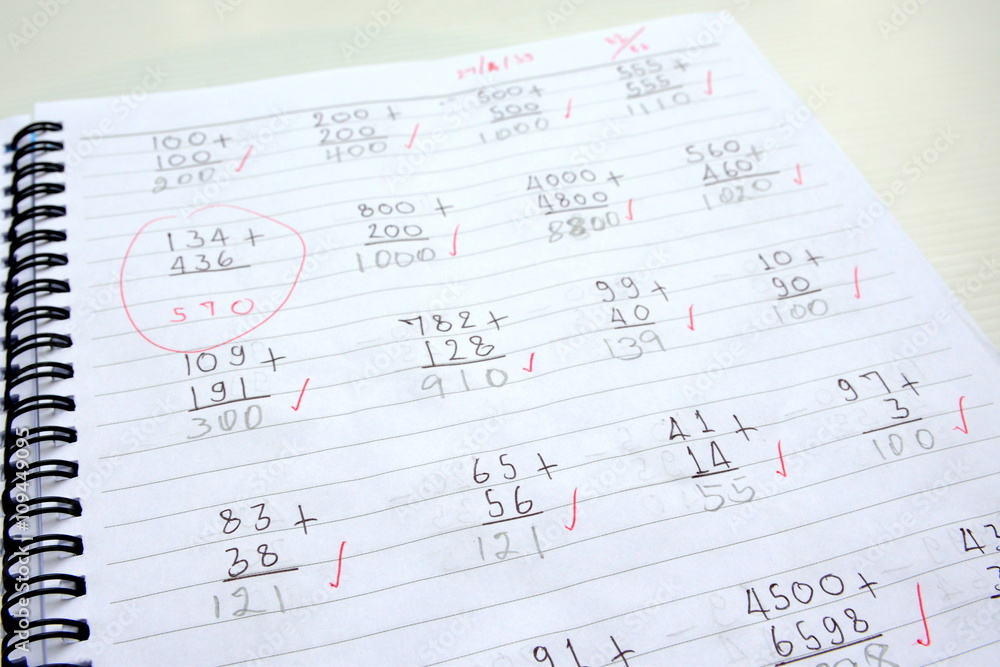 100+ 200+ 500+ 555+
100 200 500 555
200 400 1000 1110
134+ 800+ 4000+ 560+
436 200 4800 460
570 1000 8800 1020
109+ 782+ 99+ 10+
191 128 40 90
300 910 139 100
83+ 65+ 41+ 97+
38 56 14 3
121 121 55 100
91+ 4500+
6598
Adobe Stock | #109449095